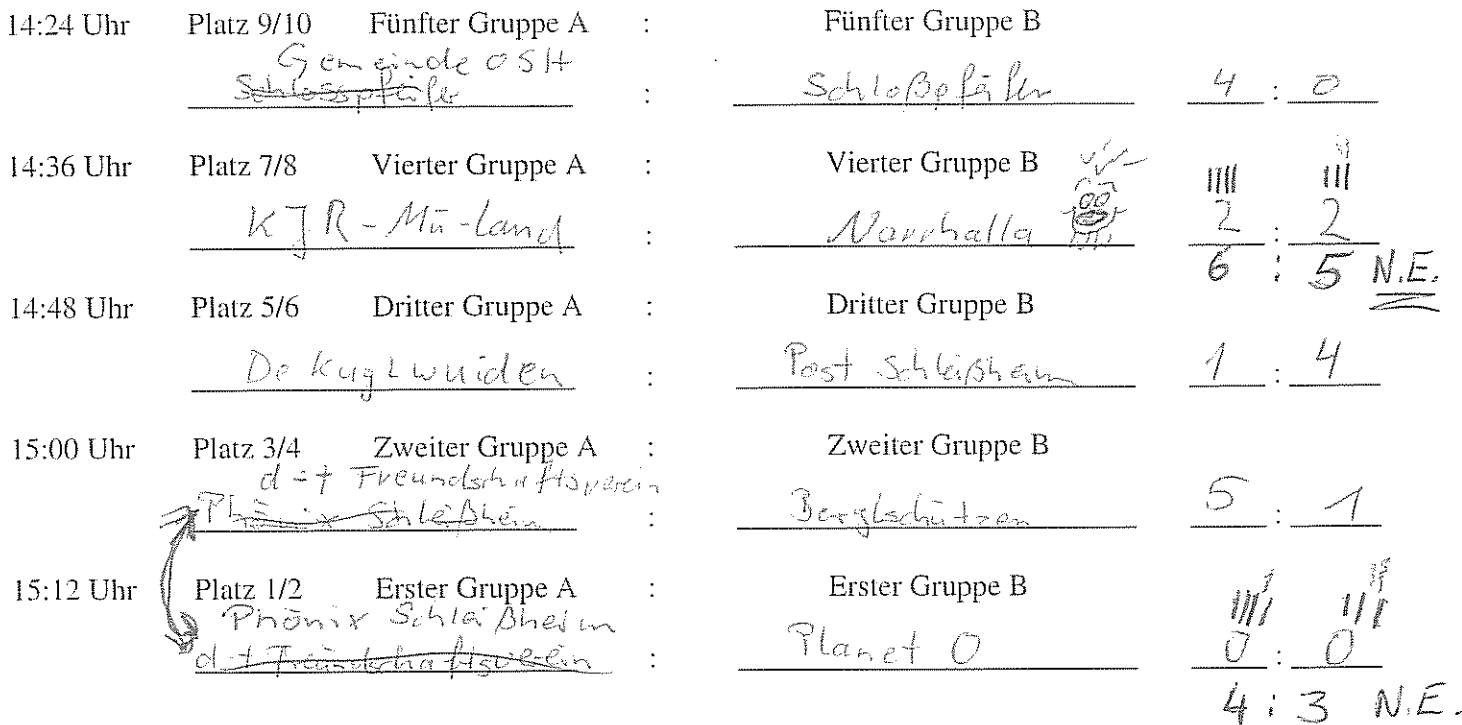 14:24 Uhr Platz 9/10 Fünfter Gruppe A : Fünfter Gruppe B
Gemeinde OSH
Schlosspfeifer : Schloßpfeifer 4 : 0
14:36 Uhr Platz 7/8 Vierter Gruppe A : Vierter Gruppe B
KJR-Mü-Land : Narrhalla 2 : 2
6 : 5 N.E.
14:48 Uhr Platz 5/6 Dritter Gruppe A : Dritter Gruppe B
De Kuglwuiden : Post Schleißheim 1 : 4
15:00 Uhr Platz 3/4 Zweiter Gruppe A : Zweiter Gruppe B
d-t Freundschaftsverein
Phönix Schleißheim : Berglschützen 5 : 1
15:12 Uhr Platz 1/2 Erster Gruppe A : Erster Gruppe B
Phönix Schleißheim
d-t Freundschaftsverein : Planet O 0 : 0
4 : 3 N.E.